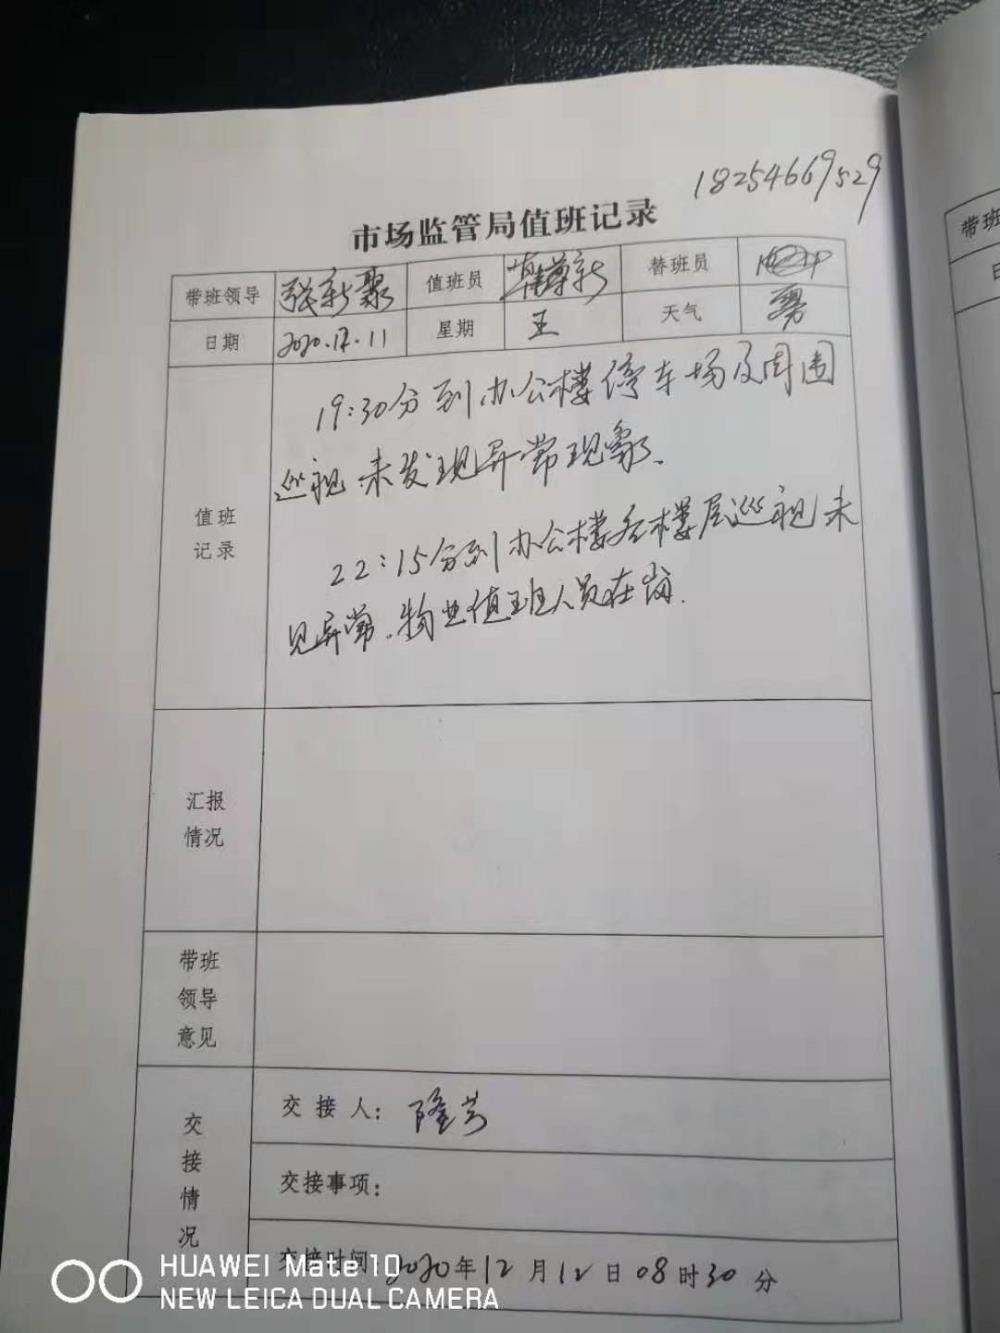 18254669529
市场监管局值班记录
带班领导 张新聚 值班员 替班员
日期 2020.12.11 星期 五 天气 雾
19:30分到办公楼停车场及周围
巡视.未发现异常现象.
22:15分到办公楼各楼层巡视未
见异常.物业值班人员在岗.
值班
记录
汇报
情况
带班
领导
意见
交接情况
交接人: 隆芳
交接事项:
交接时间:2020年12月12日08时30分
带班
日
HUAWEI Mate 10
NEW LEICA DUAL CAMERA